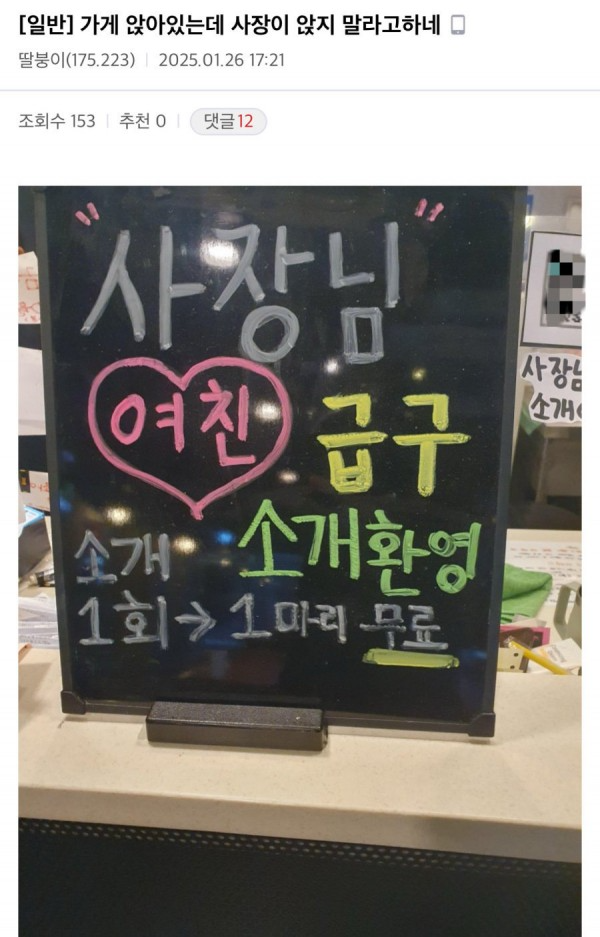 [일반] 가게 앉아있는데 사장이 앉지 말라고하네
딸붕이(175.223) 2025.01.26 17:21
조회수 153 추천 0 댓글 12
"사장님"
여친 급구
소개 소개환영
1회→1마리 무료
사장님
소개